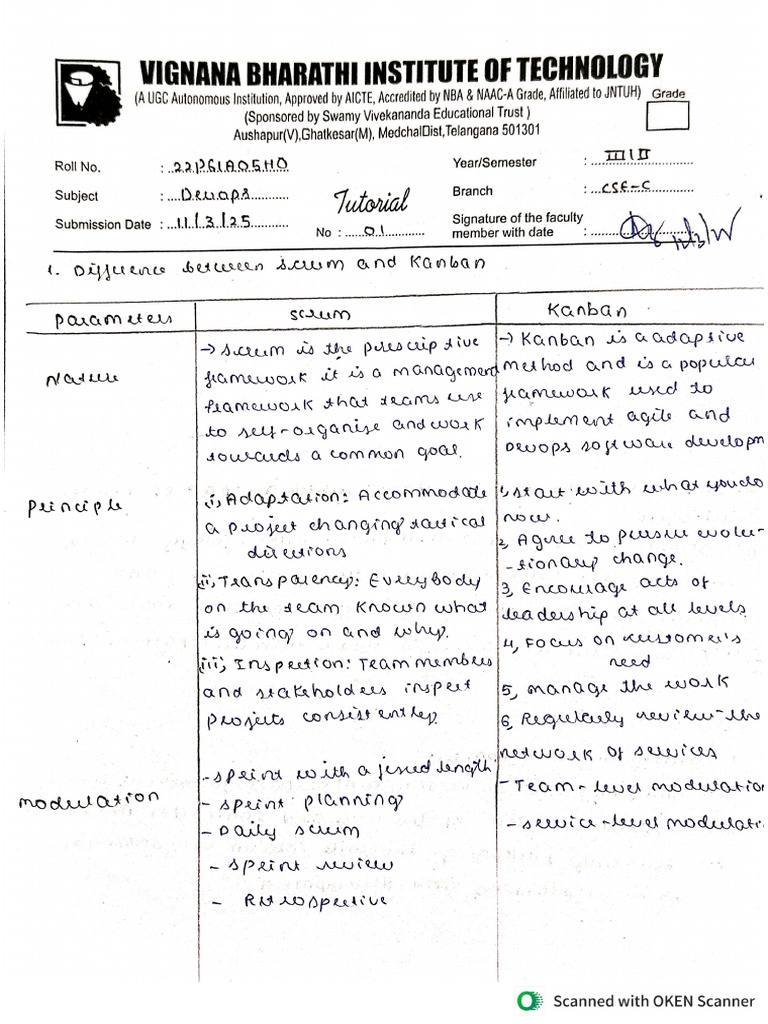 VIGNANA BHARATHI INSTITUTE OF TECHNOLOGY
(A UGC Autonomous Institution, Approved by AICTE, Accredited by NBA & NAAC-A Grade, Affiliated to JNTUH)
Grade
(Sponsored by Swamy Vivekananda Educational Trust )
Aushapur(V),Ghatkesar(M), MedchalDist,Telangana 501301
Roll No. : 22P61A05H0
Year/Semester : III/II
Subject : Devops
Tutorial
Branch : CSE-C
Submission Date : 11/3/25
No : 01
Signature of the faculty
member with date :
1. Difference between scrum and Kanban
Parameters
scrum
Kanban
Nature
→ scrum is the prescriptive
framework it is a management
framework that teams use
to self-organise and work
towards a common goal.
→ Kanban is a adaptive
method and is a popular
framework used to
implement agile and
Devops software developm
Principle
(i) Adaptation: Accommodate
a project changing tactical
directions
(ii) Transparency: Everybody
on the team known what
is going on and why.
(iii) Inspection: Team members
and stakeholders inspect
projects consistently.
1, start with what you do
now.
2, Agree to pursue evolu-
-tionary change.
3, Encourage acts of
leadership at all levels
4, Focus on customer's
need
5, manage the work
6, Regularly review the
network of services
modulation
- sprint with a fixed length
- sprint planning
- Daily scrum
- sprint review
- Retrospective
- Team-level modulation
- service-level modulati
Scanned with OKEN Scanner